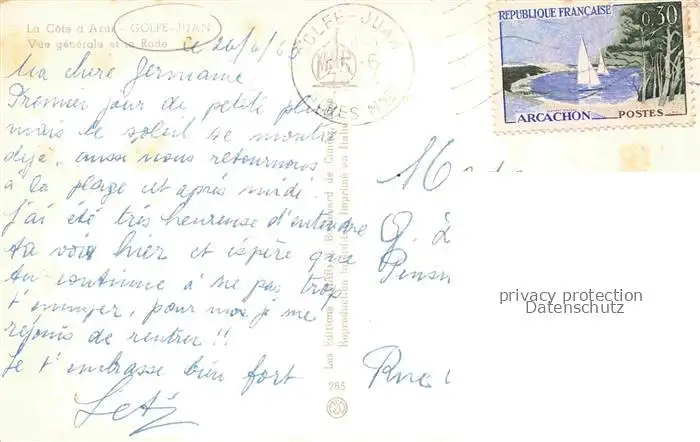 La Côte d'Azur - GOLFE-JUAN
Vue générale et la Rade
Ce 26/6/6
Ma chère Germaine
Premier jour de petite pluie
mais le soleil se montre
déjà, aussi nous retournons
à la plage cet après midi.
J'ai été très heureuse d'entendre
ta voix hier et espère que
tu continue à ne pas trop
t'ennuyer, pour moi je me
réjouis de rentrer !!
Je t'embrasse bien fort
GOLFE-JUAN
RÉPUBLIQUE FRANÇAISE
0,30
ARCACHON POSTES
Les Editions
Boulevard de
Reproduction interdite Imprimé en Italie
285
Rue
privacy protection
Datenschutz